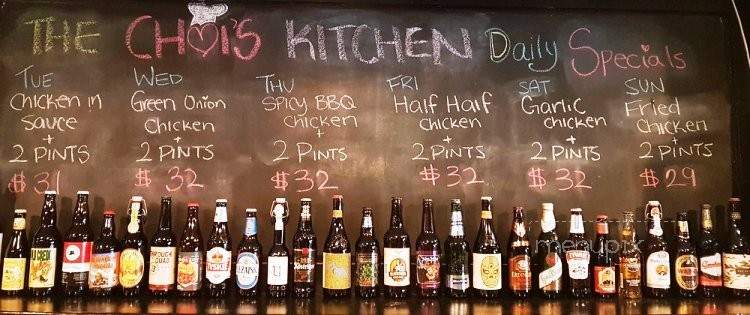 THE CHOI'S KITCHEN Daily Specials
TUE
Chicken in
Sauce
+
2 PINTS
$31
WED
Green Onion
Chicken
+
2 PINTS
$32
THU
SPICY BBQ
Chicken
+
2 PINTS
$32
FRI
Half Half
chicken
+
2 PINTS
$32
SAT
Garlic
chicken
+
2 PINTS
$32
SUN
Fried
Chicken
+
2 PINTS
$29
menupix
TYSKIE